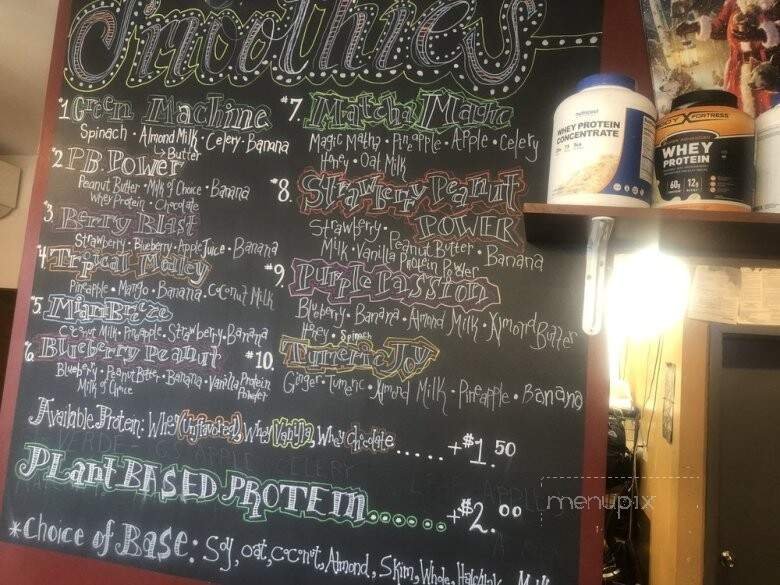 Smoothies
#1 Green Machine
Spinach · Almond Milk · Celery · Banana
#2 P.B. Power
Peanut Butter · Milk of Choice · Banana
Whey Protein · Chocolate
#3. Berry Blast
Strawberry · Blueberry · Apple Juice · Banana
#4. Tropical Medley
Pineapple · Mango · Banana · Coconut Milk
#5. Miami Breeze
Coconut Milk · Pineapple · Strawberry · Banana
#6. Blueberry Peanut Butter
Blueberry · Peanut Butter · Banana · Vanilla Protein Powder
Milk of Choice
#7. Matcha Magic
Magic Matha · Pineapple · Apple · Celery
Honey · Oat Milk
#8. Strawberry Peanut
POWER
Strawberry · Peanut Butter · Banana
Milk · Vanilla Protein Power
#9. Purple Passion
Blueberry · Banana · Almond Milk · Almond Butter
Honey · Spinach
#10. Tumeric Joy
Ginger · Tumeric · Almond Milk · Pineapple · Banana
Available Protein: Whey (unflavored), Whey Vanilla, Whey Chocolate..... +$1.50
Plant BASED PROTEIN...... +$2.00
*Choice of Base: Soy, oat, coconut, Almond, Skim, Whole, Half
nutricost
WHEY PROTEIN
CONCENTRATE
FORTRESS
WHEY
PROTEIN
60g 12g
menupix